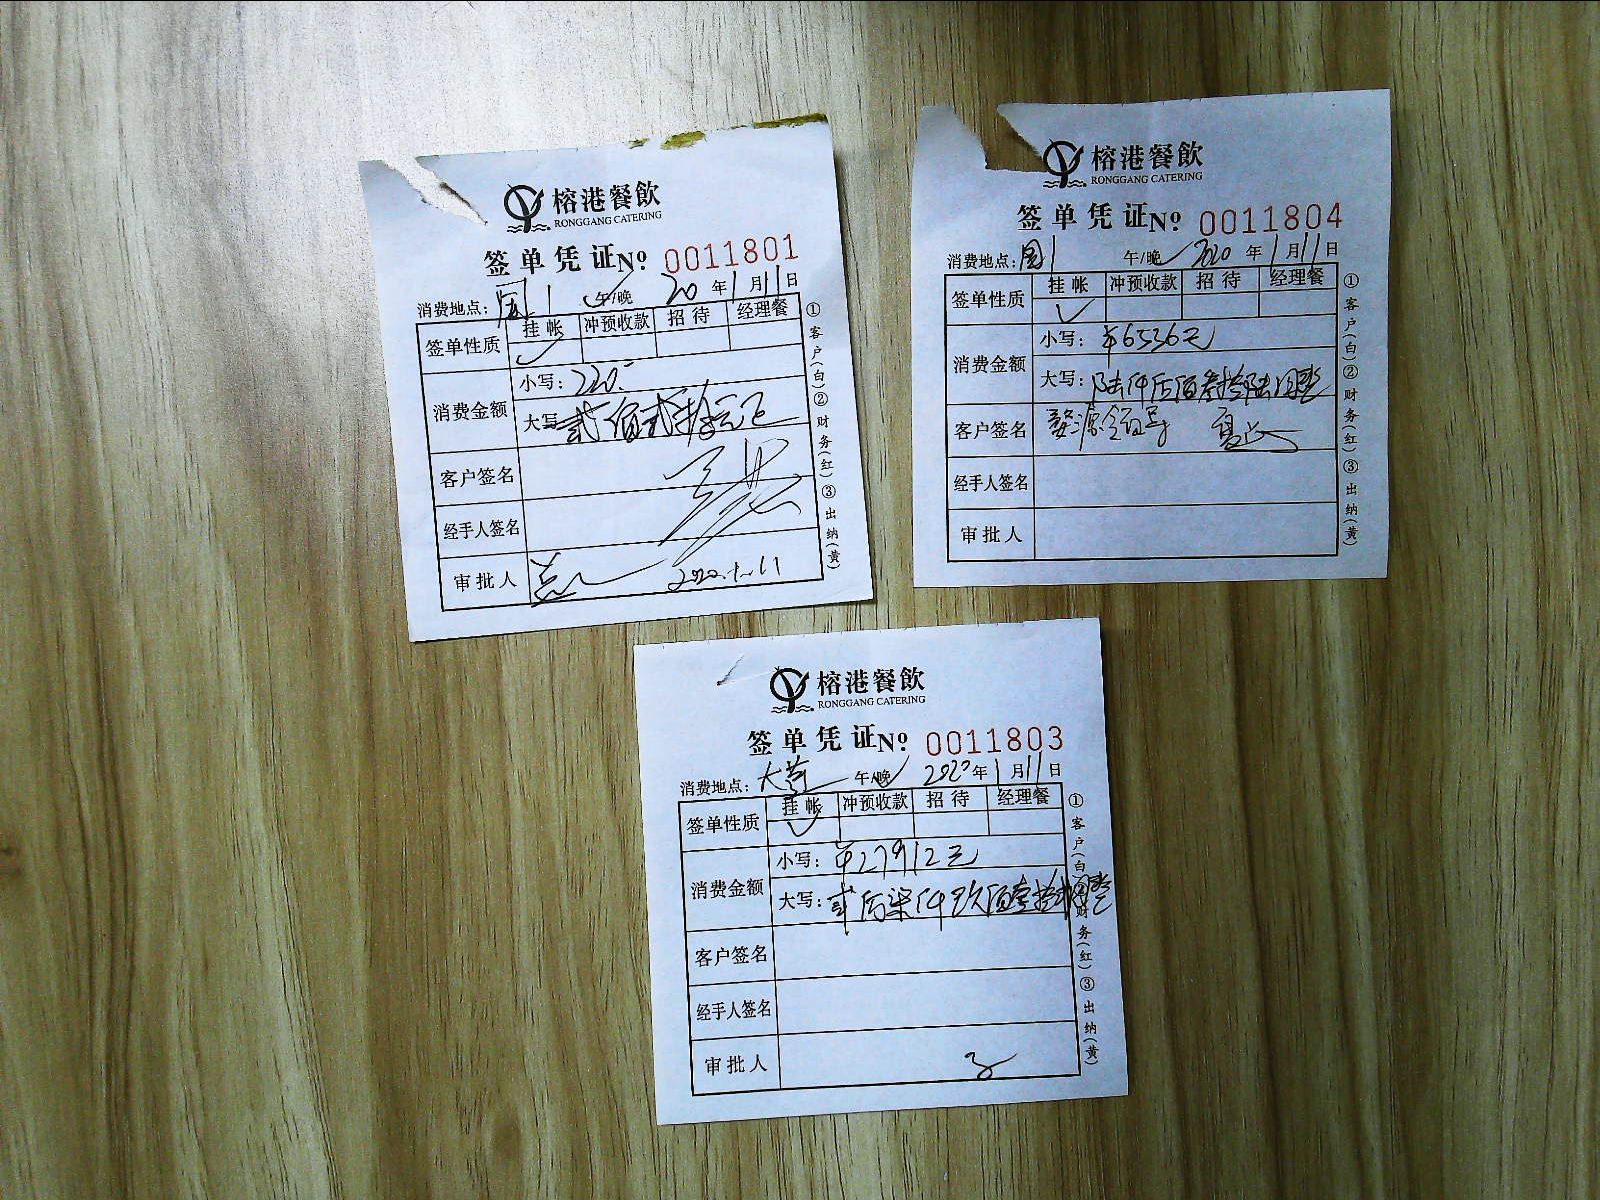 榕港餐飲
RONGGANG CATERING
签单凭证Nº 0011801
消费地点: 1 午/晚 20年1月11日
签单性质 挂帐 冲预收款 招待 经理餐
消费金额 小写: 220.
大写 贰佰贰拾元正
客户签名
经手人签名
审批人 2020.1.11
①客户(白)②财务(红)③出纳(黄)
榕港餐飲
RONGGANG CATERING
签单凭证Nº 0011804
消费地点: 1 午/晚 2020年1月11日
签单性质 挂帐 冲预收款 招待 经理餐
消费金额 小写: ¥6536元
大写: 陆仟伍佰叁拾陆圆整
客户签名 婺源领导
经手人签名
审批人
①客户(白)②财务(红)③出纳(黄)
榕港餐飲
RONGGANG CATERING
签单凭证Nº 0011803
消费地点: 大堂 午/晚 2020年1月11日
签单性质 挂帐 冲预收款 招待 经理餐
消费金额 小写: ¥27912元
大写: 贰万柒仟玖佰壹拾贰圆整
客户签名
经手人签名
审批人
①客户(白)②财务(红)③出纳(黄)